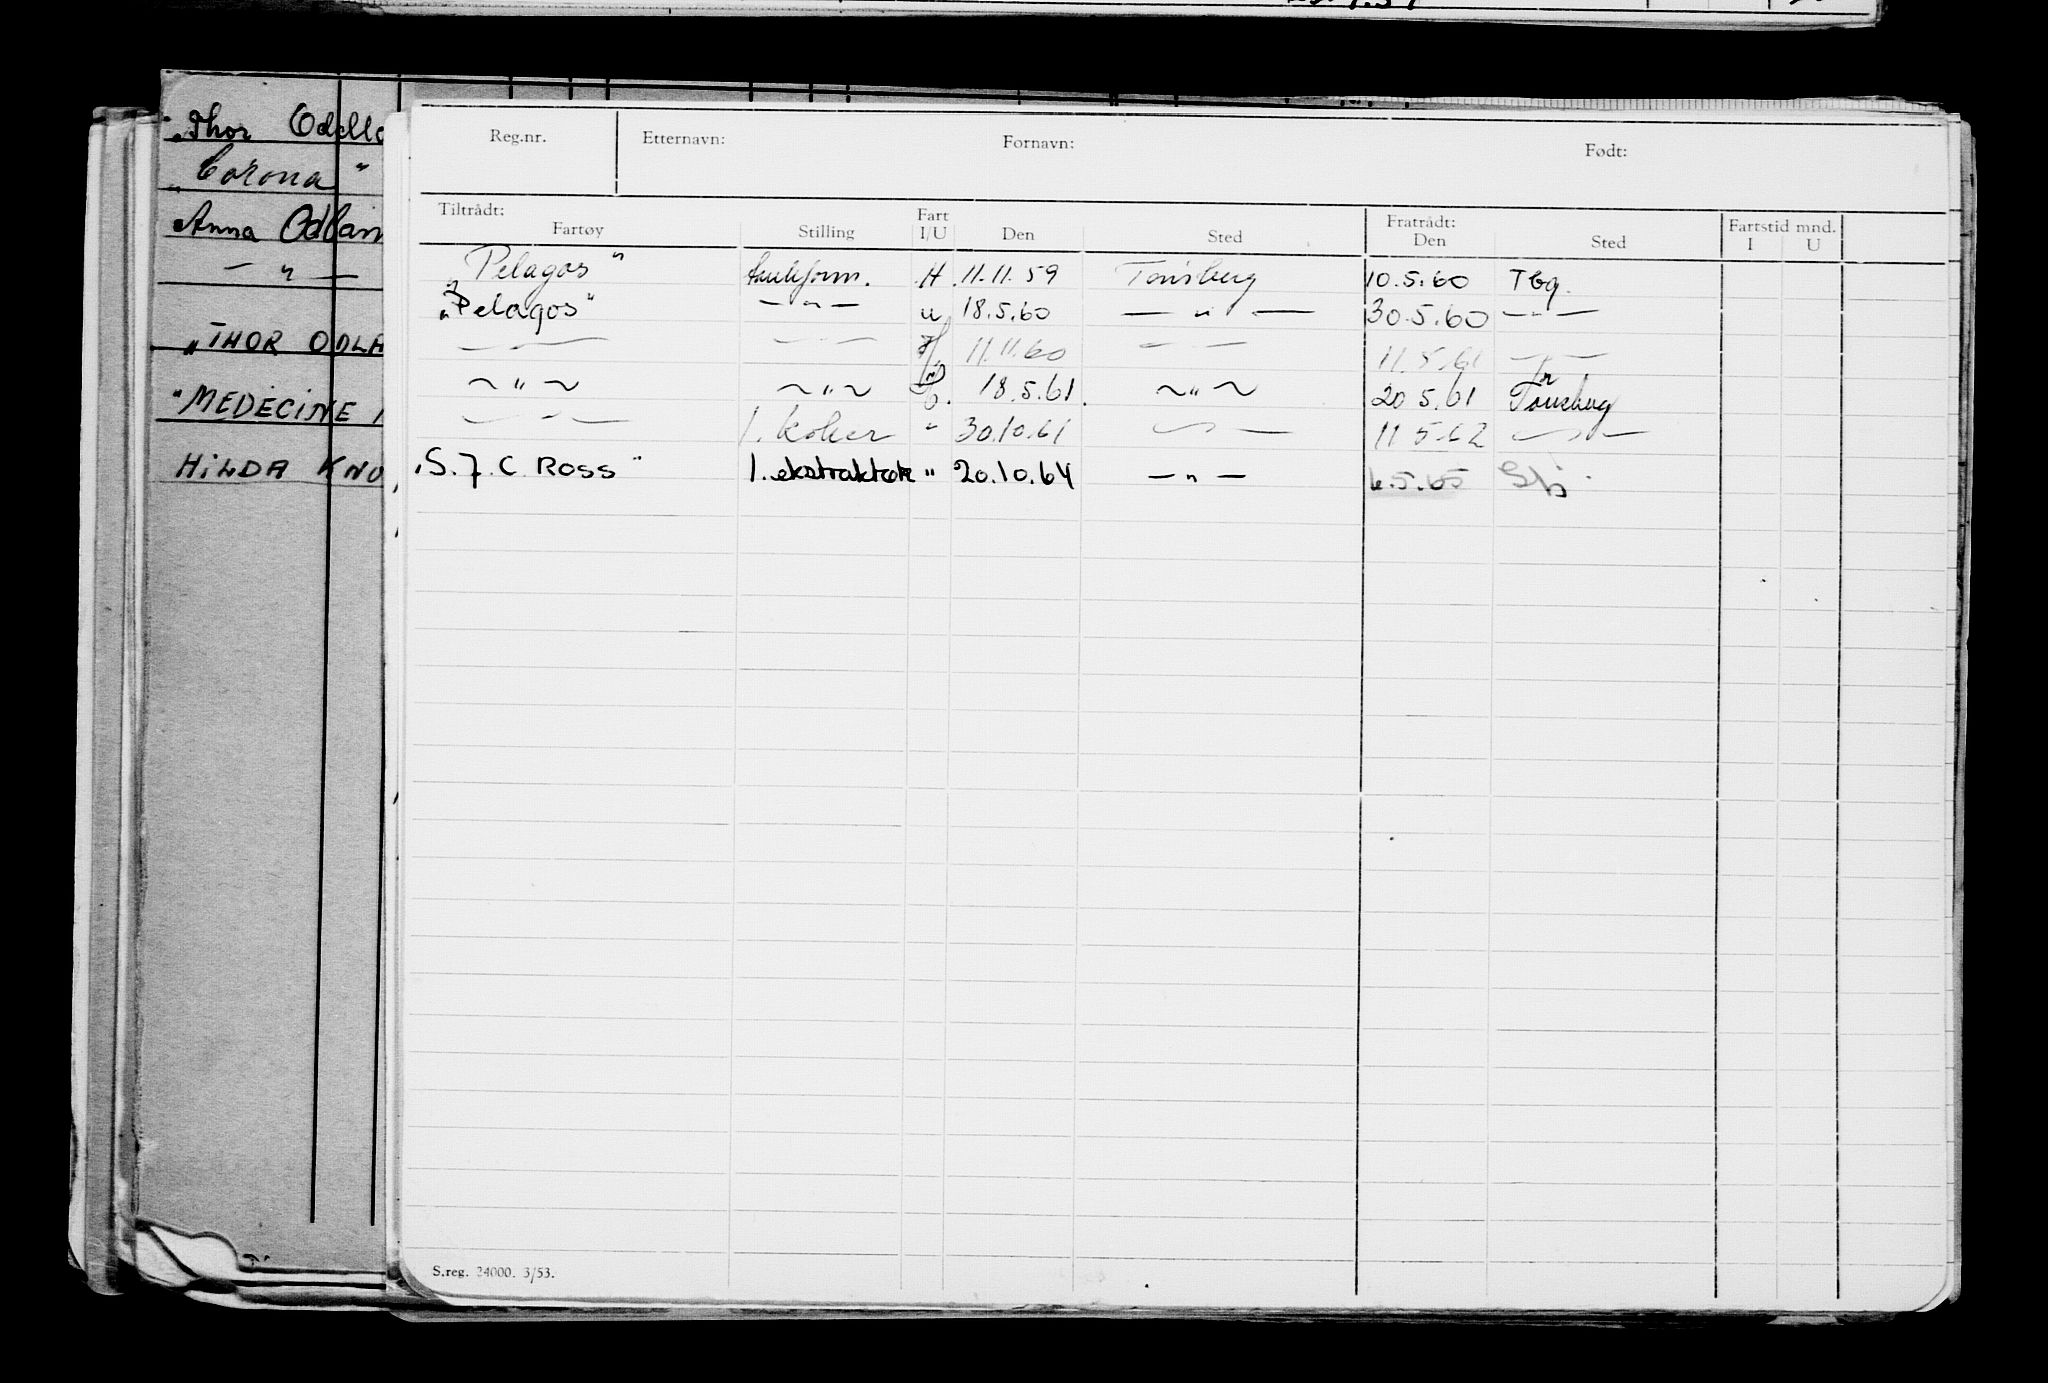 "Thor Odella
"Corona"
Anna Odlan
— " —
"THOR ODLA
"MEDECINE
HILDA KNU
Reg.nr. Etternavn: Fornavn: Født:
Tiltrådt: Fart Fratrådt: Fartstid mnd.
Fartøy Stilling I/U Den Sted Den Sted I U
"Pelagos" H 11.11.59 Tønsberg 10.5.60 Tbg.
"Pelagos" — " — u 18.5.60 — " — 30.5.60 — " —
— " — — " — 11.11.60 — " — 11.5.61 — " —
~ " ~ ~ " ~ 18.5.61. ~ " ~ 20 5.61 Tønsberg
— " — 1. koker " 30.10.61 — " — 11 5.62 — " —
"S.J.C. ROSS" 1. ekstraktør " 20.10.64 — " — 6.5.65
S.reg. 24000. 3/53.